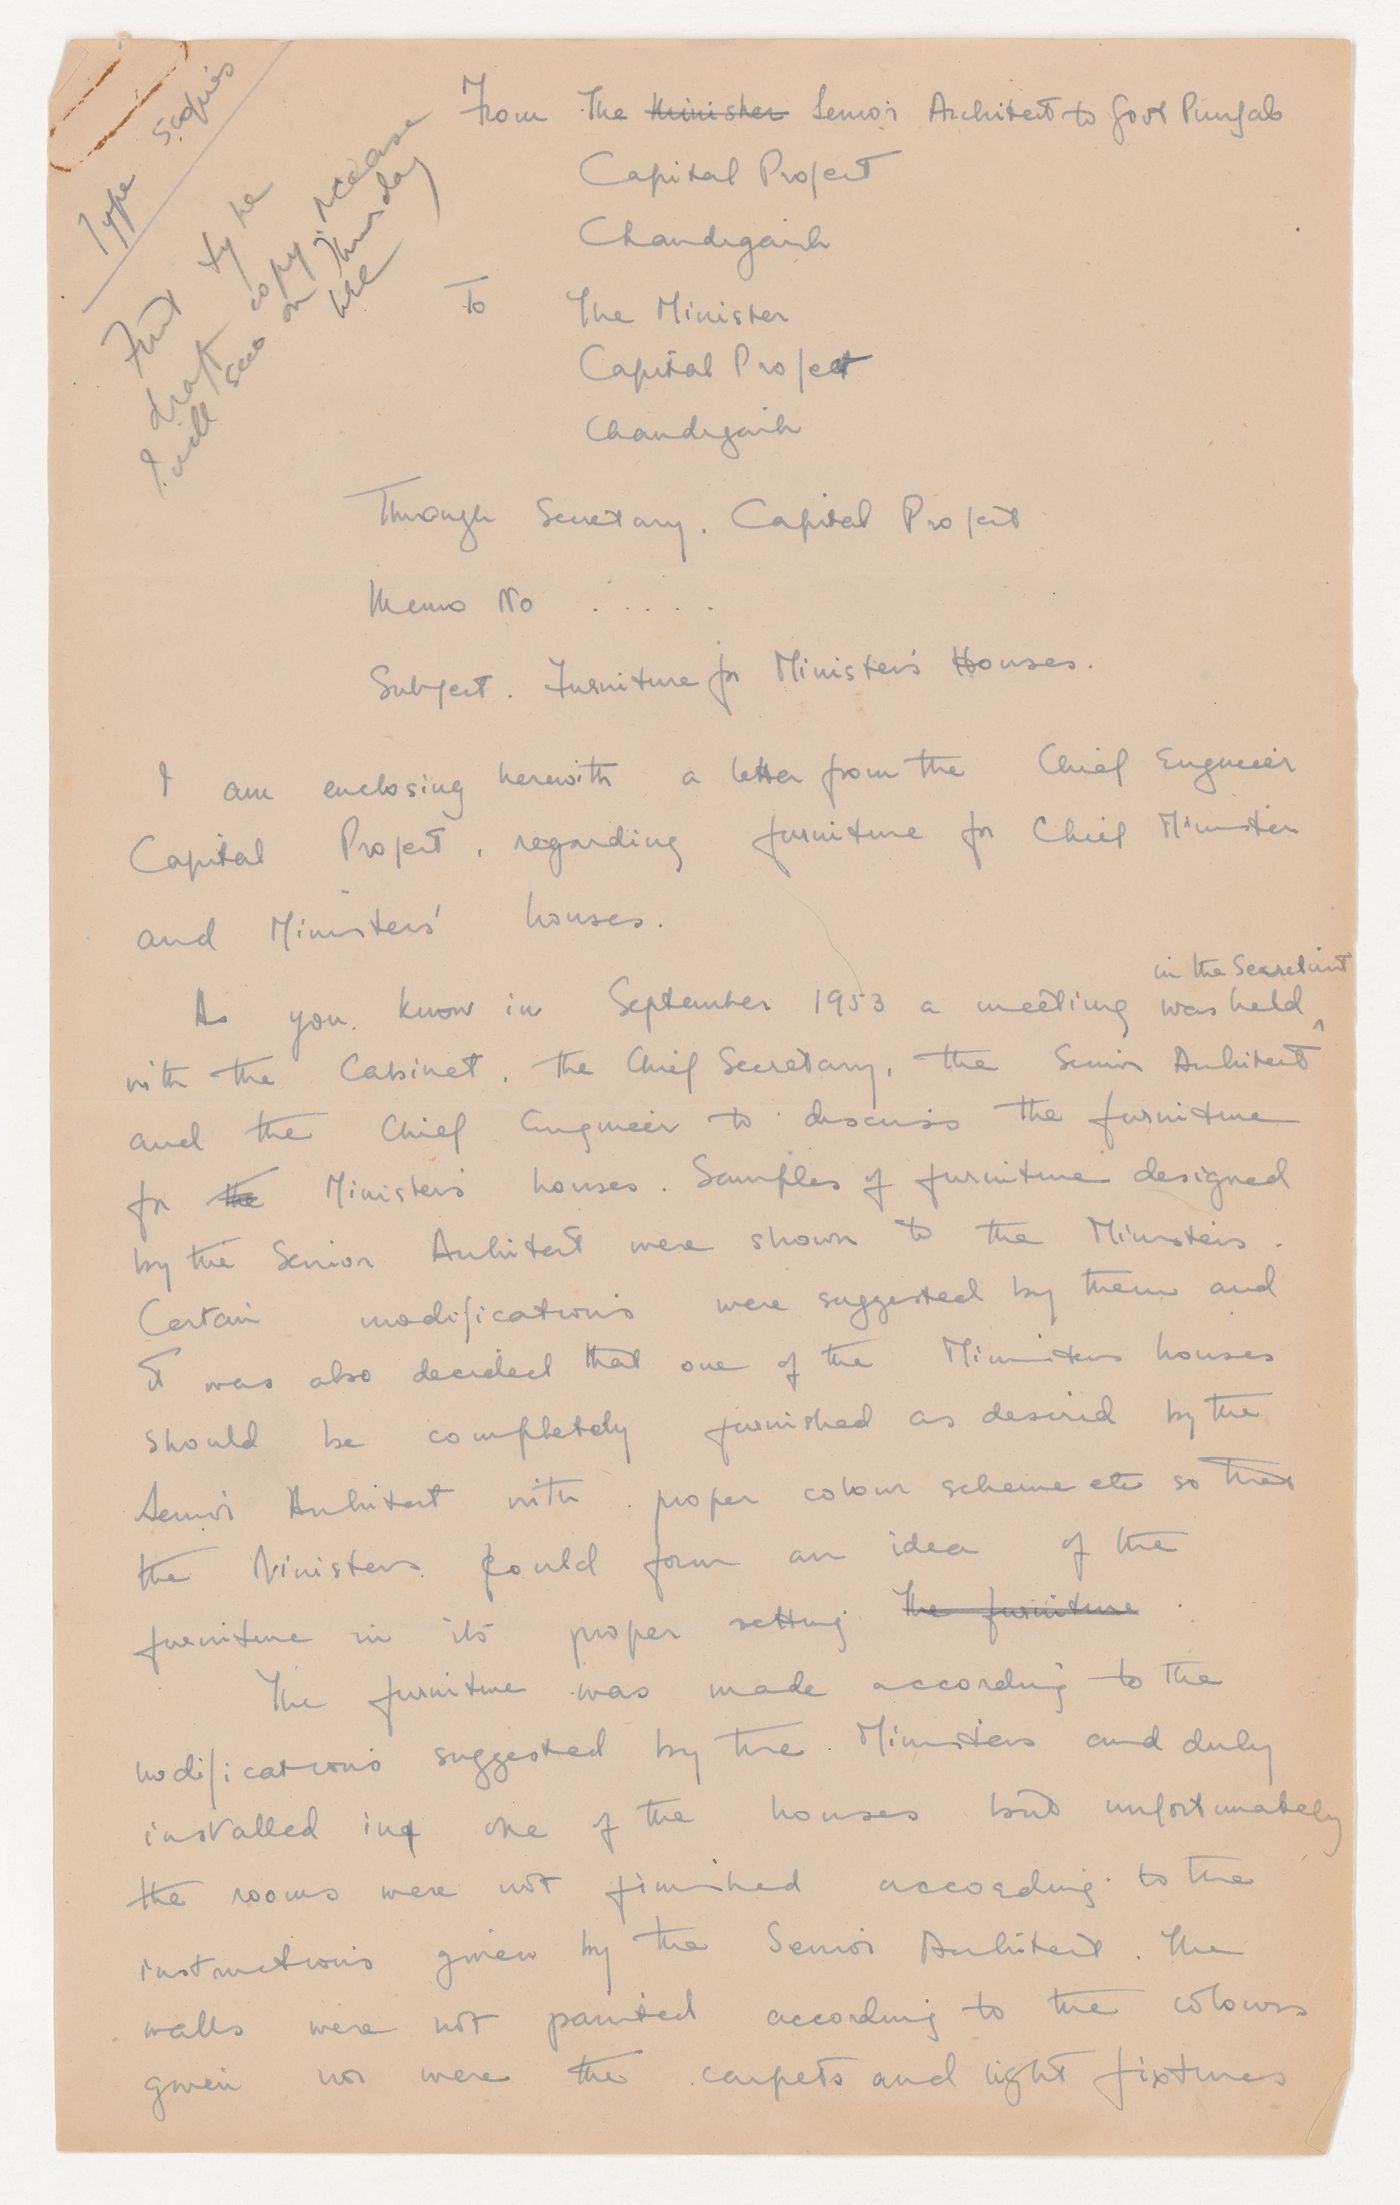 Type 5 copies
First type
draft copy please
I will see on Thursday
From The Minister Senior Architect to Govt Punjab
Capital Project
Chandigarh
To The Minister
Capital Project
Chandigarh
Through Secretary. Capital Project
Memo No .....
Subject. Furniture for Minister's Houses.
I am enclosing herewith a letter from the Chief Engineer
Capital Project, regarding furniture for Chief Minister
and Ministers' houses.
in the Secretariat
As you know in September 1953 a meeting was held ^
with the Cabinet, the Chief Secretary, the Senior Architect
and the Chief Engineer to discuss the furniture
for the Minister's houses. Samples of furniture designed
by the Senior Architect were shown to the Ministers.
Certain modifications were suggested by them and
it was also decided that one of the Ministers houses
should be completely furnished as desired by the
Senior Architect with proper colour scheme etc so that
the Ministers could form an idea of the
furniture in its proper setting The furniture.
The furniture was made according to the
modifications suggested by the Ministers and duly
installed in one of the houses but unfortunately
the rooms were not finished according to the
instructions given by the Senior Architect. The
walls were not painted according to the colours
given nor were the carpets and light fixtures